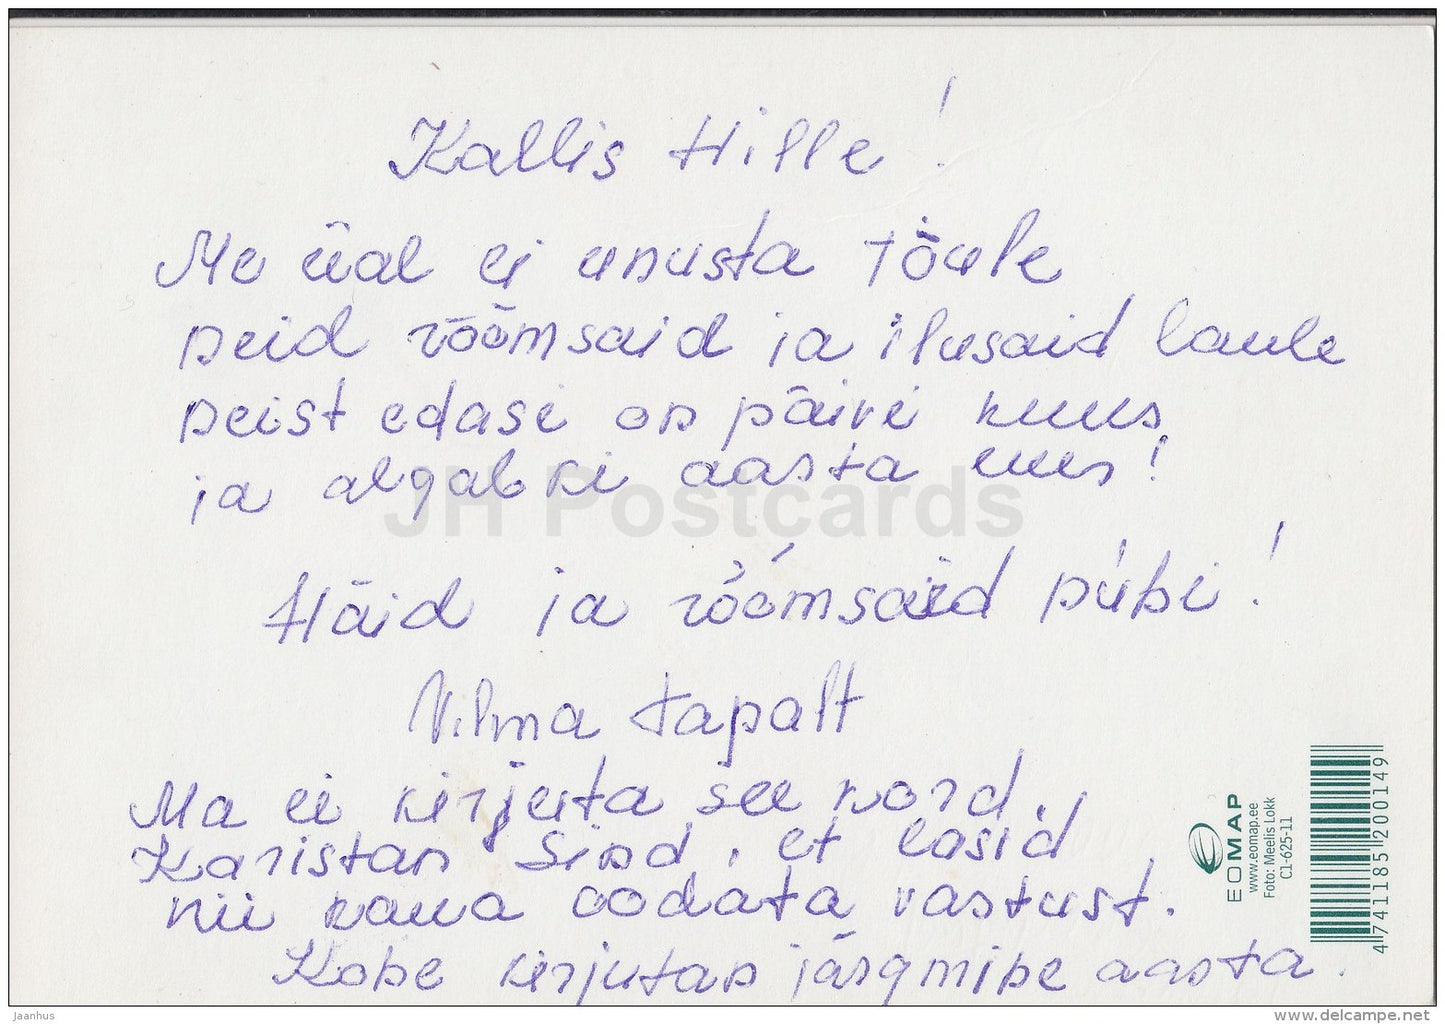 Kallis Hille!
Me üal ei unusta jõule
neid rõõmsaid ja ilusaid laule
neist edasi on päivi kuus
ja algabki aasta uus!
Häid ja rõõmsaid pühi!
Vilma Tapalt
Ma ei kirjuta see kord.
Karistan Sind, et lasid
nii kaua oodata vastust.
Kohe kirjutan järgmine aasta.
JH Postcards
EOMAP
www.eomap.ee
Foto: Meelis Lokk
C1-625-11
4 741185 200149
Jaanhus
www.delcampe.net